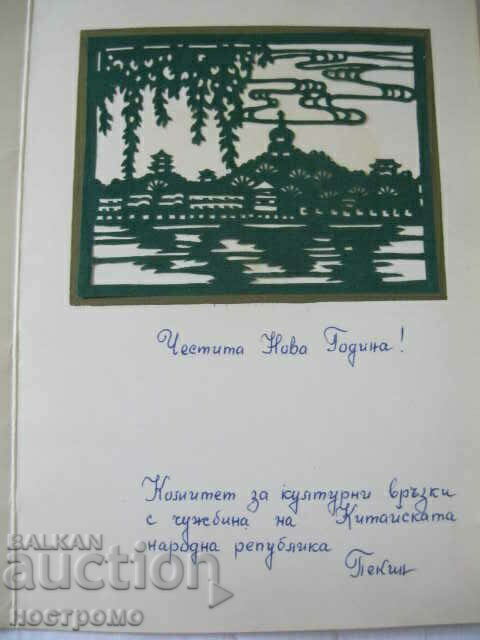 Честита Нова Година!
Комитет за културни връзки
с чужбина на Китайската
народна република
Пекин
BALKAN
auction
ностромо